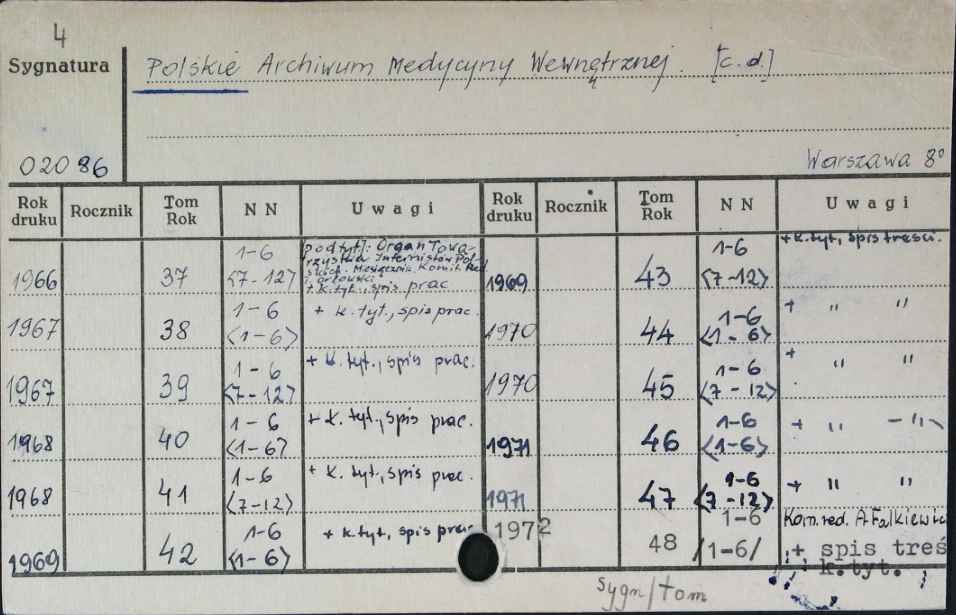 4
Sygnatura Polskie Archiwum Medycyny Wewnętrznej. [c.d.]
02086 Warszawa 8°
Rok druku Rocznik Tom Rok NN Uwagi Rok druku Rocznik Tom Rok NN Uwagi
1966 37 1-6 <7-12> podtyt: Organ Towarzystwa Internistów Polskich. Miesięcznik. Komit. Red. + k.tyt., spis prac 1969 43 1-6 <7-12> + k.tyt, spis treści.
1967 38 1-6 <1-6> + k. tyt., spis prac. 1970 44 1-6 <1-6> + " "
1967 39 1-6 <7-12> + k. tyt., spis prac. 1970 45 1-6 <7-12> + " "
1968 40 1-6 <1-6> + k. tyt., spis prac. 1971 46 1-6 <1-6> + " -"-
1968 41 1-6 <7-12> + k. tyt., spis prac. 1971 47 1-6 <7-12> + " "
1969 42 1-6 <1-6> + k.tyt, spis prac 1972 48 1-6 /1-6/ Kom. red. A. Falkiewicz + spis treś k.tyt.
sygn/tom